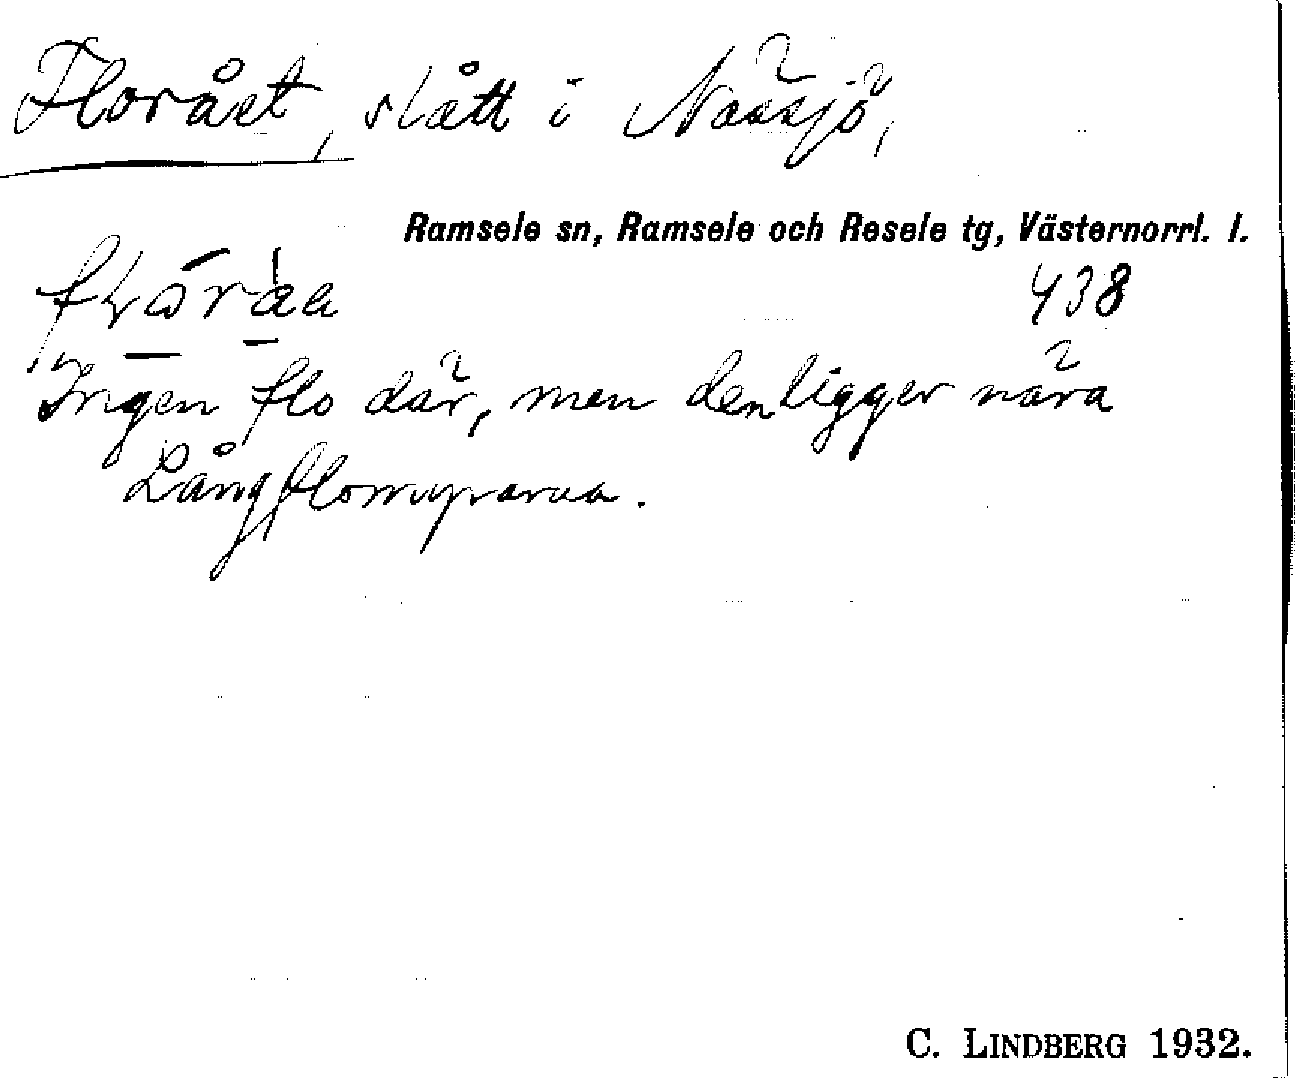 Florået, slått i Nässjö,
Ramsele sn, Ramsele och Resele tg, Västernorrl. l.
438
Ingen flo där, men den ligger nära
C. LINDBERG 1932.